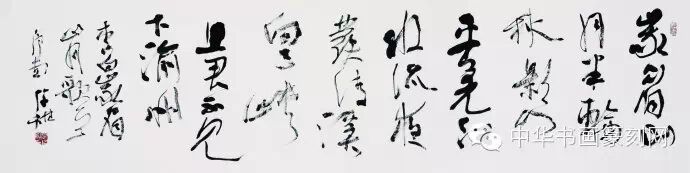 峩眉山
月半輪
秋影入
平羌江
水流夜
發清溪
向三峽
思君不見
下渝州
李白峩眉
山月歌
中华书画篆刻网